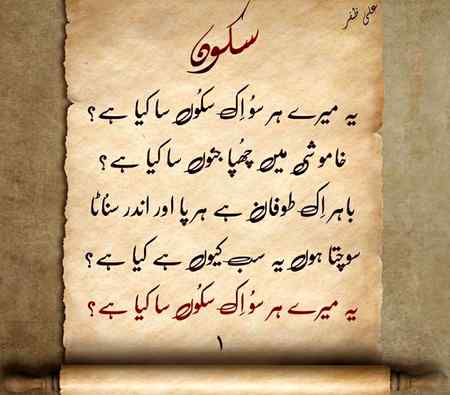 علی ظفر
سکون
یہ میرے ہر سوُ اِک سکوُں سا کیا ہے؟
خاموشی میں چھُپا جنوں سا کیا ہے؟
باہر اِک طوفان ہے برپا اور اندر سناٹا
سوچتا ہوں یہ سب کیوں ہے کیا ہے؟
یہ میرے ہر سوُ اِک سکوُں سا کیا ہے؟
۱